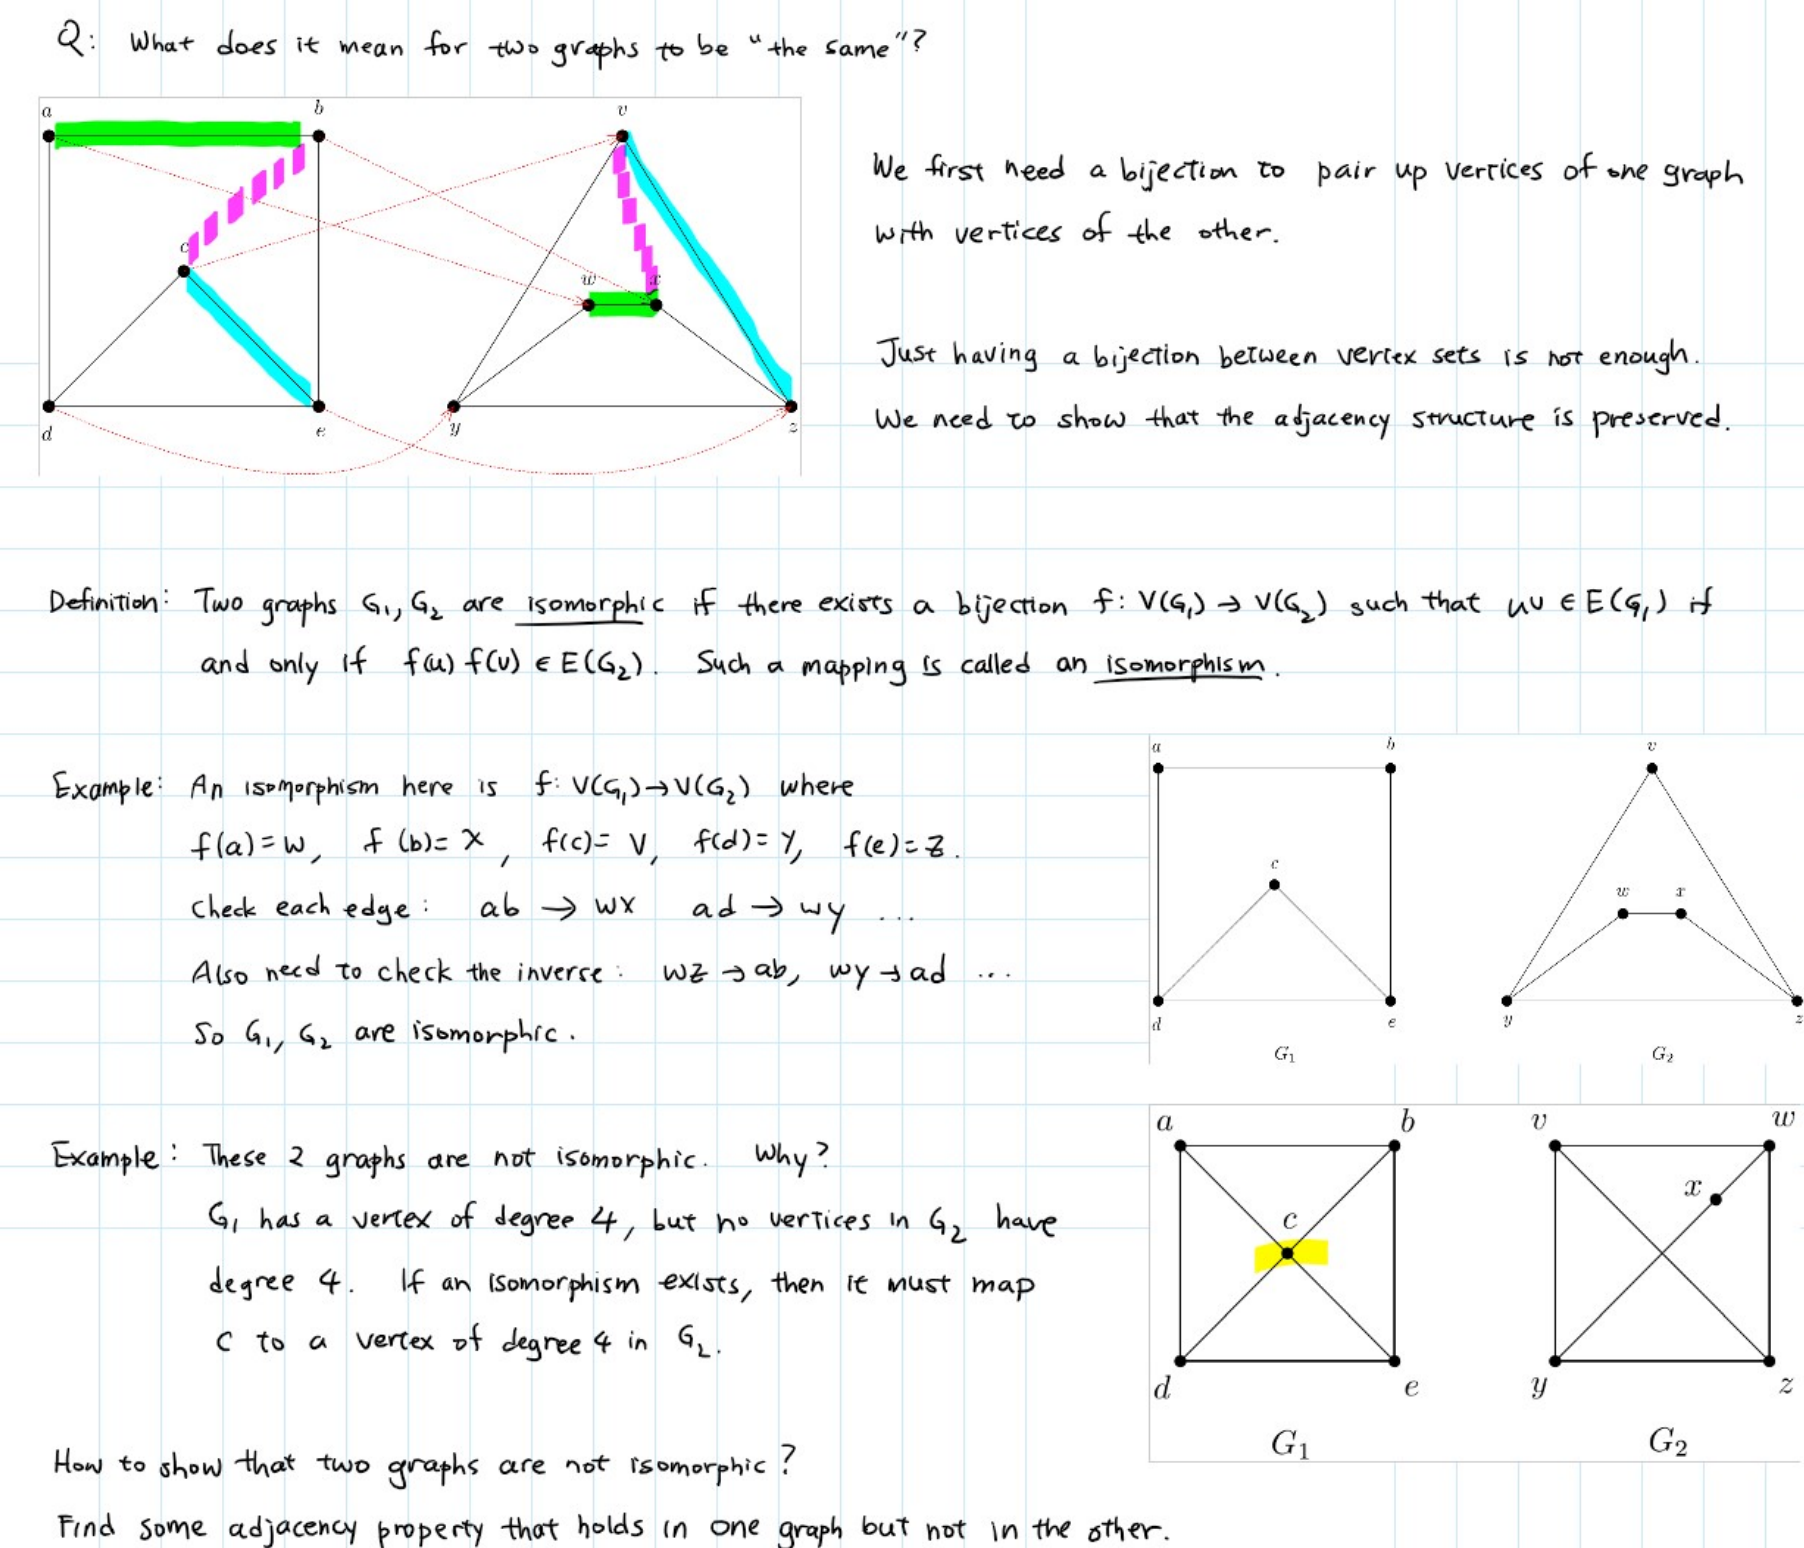 Q: What does it mean for two graphs to be "the same"?
a b v
c
w x
d e y z
We first need a bijection to pair up vertices of one graph
with vertices of the other.
Just having a bijection between vertex sets is not enough.
We need to show that the adjacency structure is preserved.
Definition: Two graphs G₁, G₂ are isomorphic if there exists a bijection f: V(G₁) → V(G₂) such that uv ∈ E(G₁) if
and only if f(u) f(v) ∈ E(G₂). Such a mapping is called an isomorphism.
Example: An isomorphism here is f: V(G₁) → V(G₂) where
f(a) = w, f(b) = x, f(c) = v, f(d) = y, f(e) = z.
Check each edge: ab → wx ad → wy ...
Also need to check the inverse: wz → ab, wy → ad ...
So G₁, G₂ are isomorphic.
a b v
c
w x
d e y z
G₁ G₂
Example: These 2 graphs are not isomorphic. Why?
G₁ has a vertex of degree 4, but no vertices in G₂ have
degree 4. If an isomorphism exists, then it must map
c to a vertex of degree 4 in G₂.
a b v w
x
c
d e y z
G₁ G₂
How to show that two graphs are not isomorphic?
Find some adjacency property that holds in one graph but not in the other.